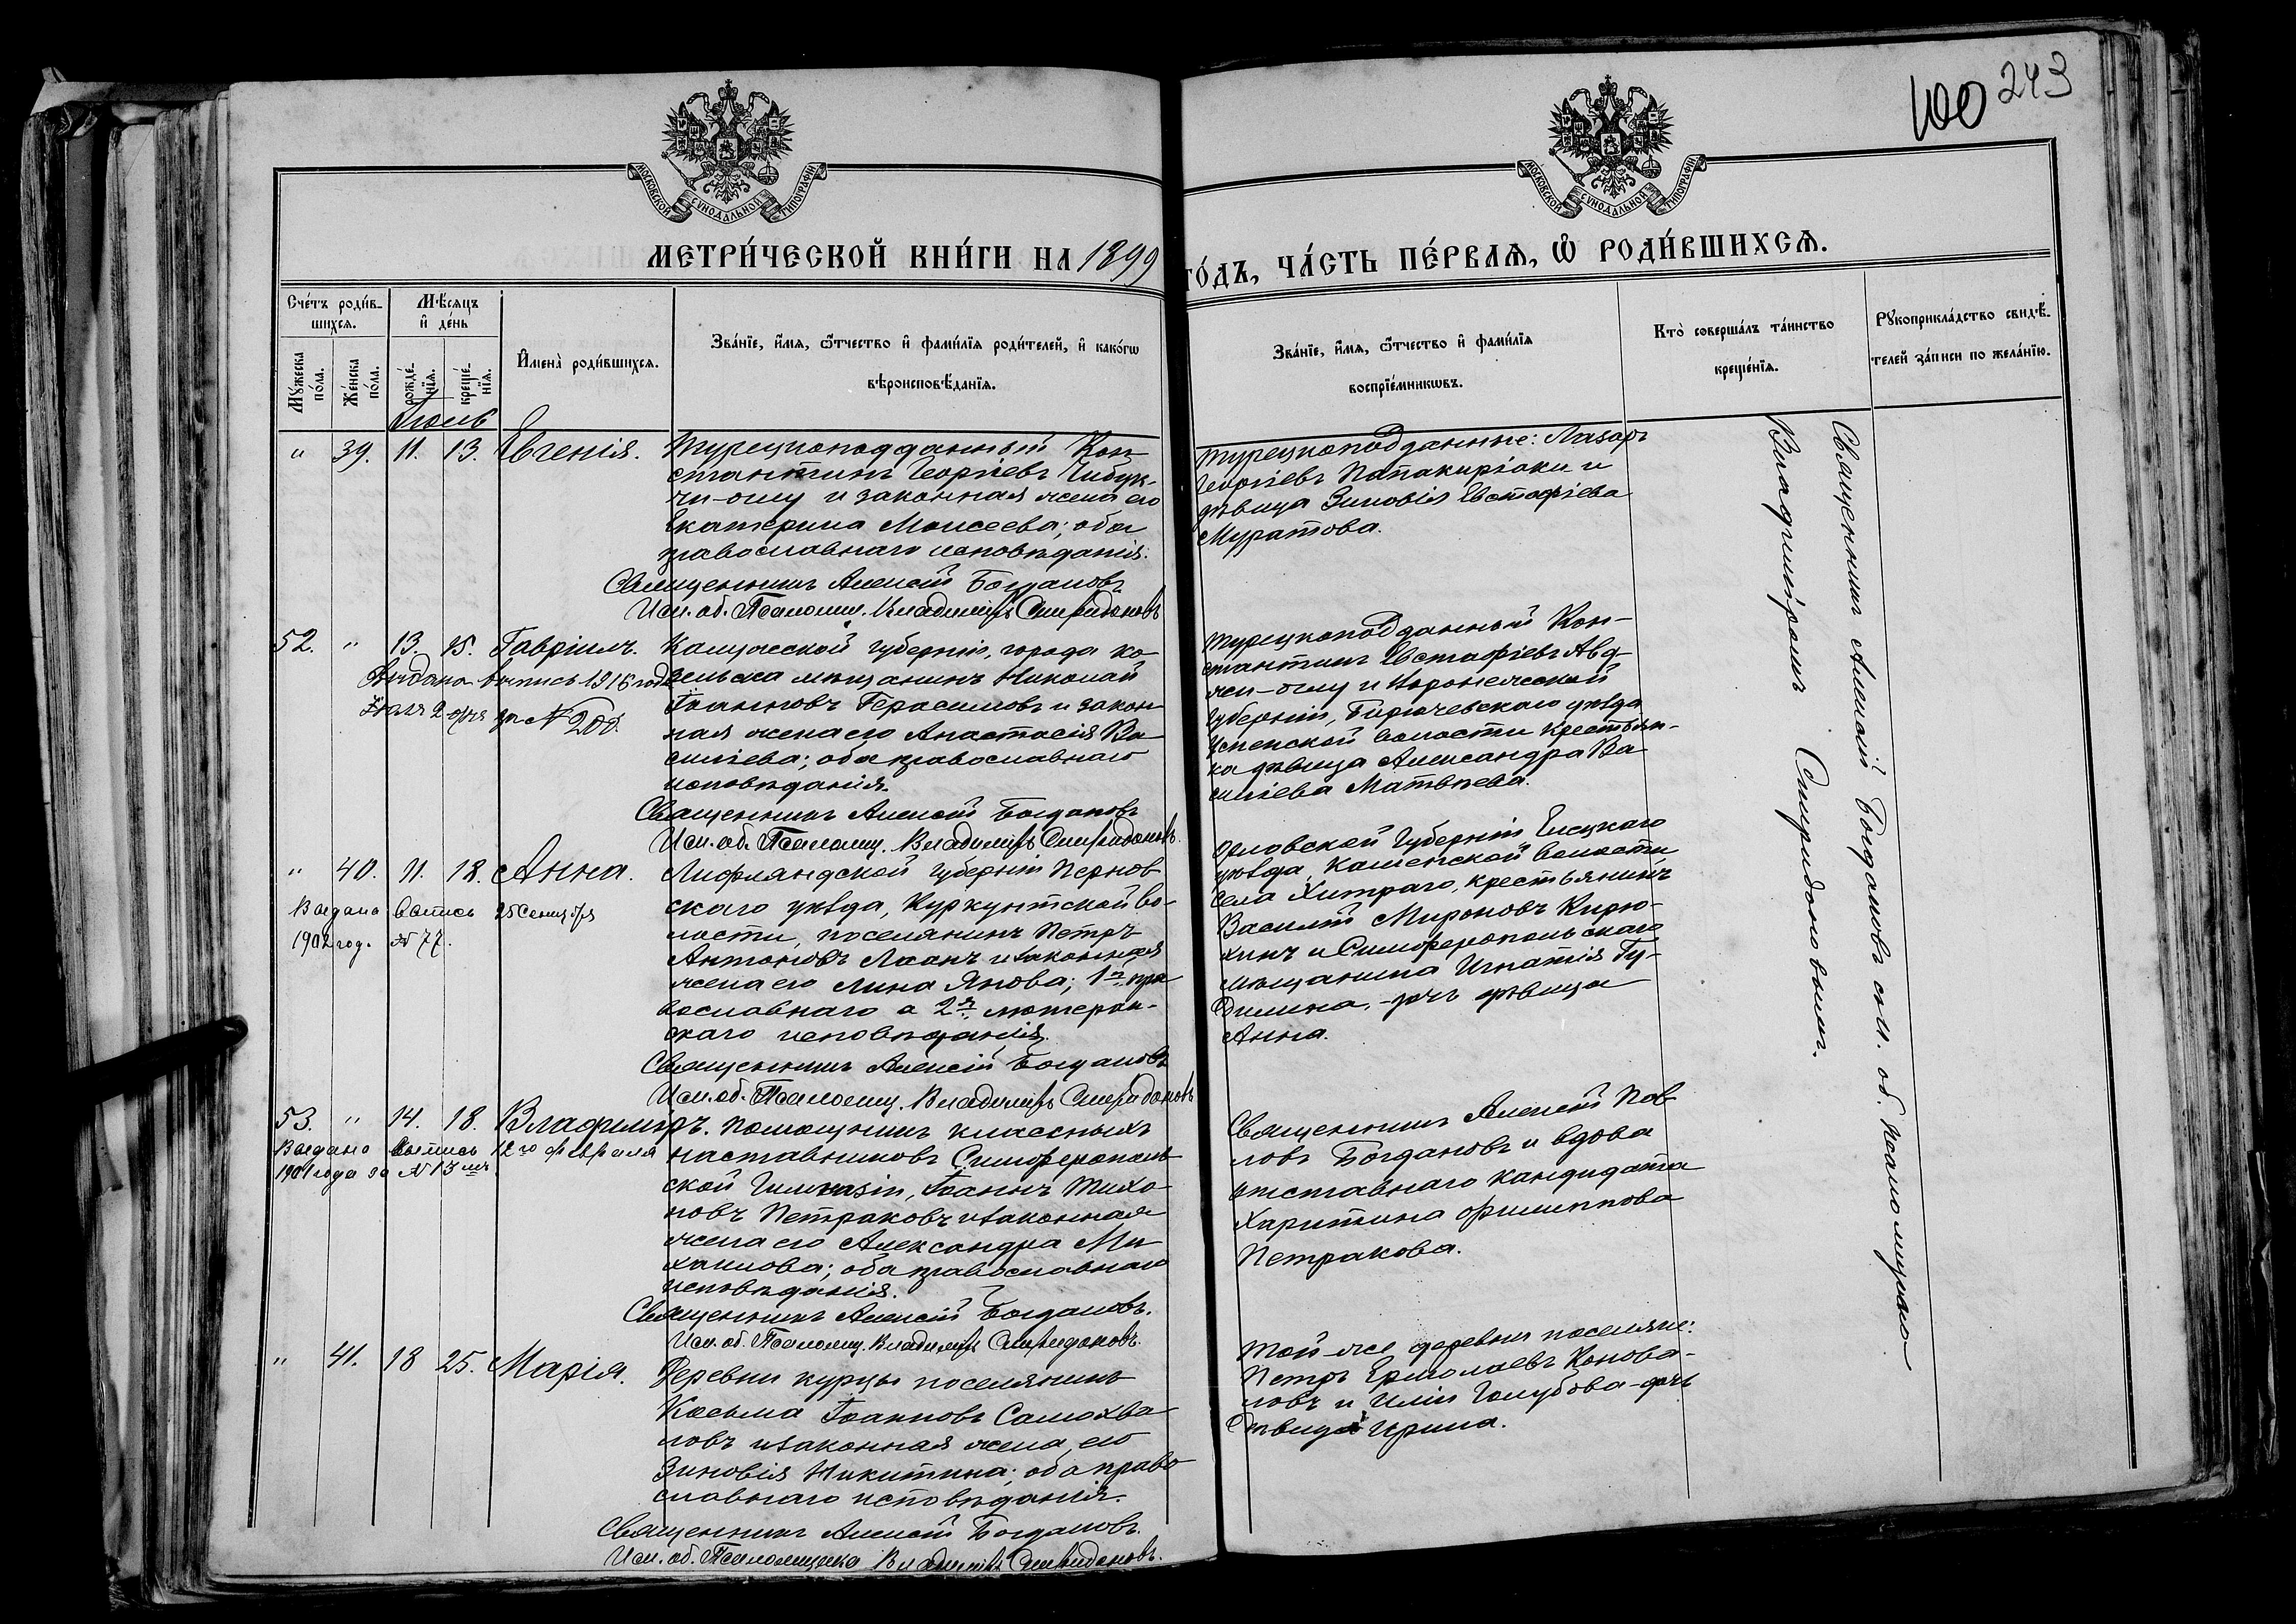 100 243
МОСКОВСКОЙ СѴНОДАЛЬНОЙ ТИПОГРАФІИ
МОСКОВСКОЙ СѴНОДАЛЬНОЙ ТИПОГРАФІИ
МЕТРИ́ЧЕСКОЙ КНИ́ГИ НА 1899
ГО́ДЪ, ЧА́СТЬ ПЕ́РВАѦ, Ѽ РОДИ́ВШИХСѦ.
Сче́тъ роди́в-
шихсѧ.
Мѣ́сѧцъ
и҆ де́нь
Му́жеска по́ла.
Же́нска по́ла.
рожде́-
нїѧ.
креще́-
нїѧ.
И҆мена̀ роди́вшихсѧ.
Зва́нїе, и҆́мѧ, ѻ҆́тчество и҆ фами́лїѧ роди́телей, и҆ како́гѡ
вѣроисповѣ́данїѧ.
Зва́нїе, и҆́мѧ, ѻ҆́тчество и҆ фами́лїѧ
воспрїе́мникѡвъ.
Кто̀ соверша́лъ та́инство
креще́нїѧ.
Рꙋкоприкла́дство свидѣ́-
телей за́писи по жела́нїю.
Іюль
" 39. 11. 13. Евгенія.
Турецкоподданный Кон
стантинъ Георгіевъ Чибук-
чи-оглу и законная жена его
Екатерина Моисеева; оба
православнаго исповѣданія.
Священникъ Алексій Богдановъ
Исп. об. Псаломщ. Владиміръ Спиридоновъ
Турецкоподданные: Лазарь
Георгіевъ Папакиріаки и
дѣвица Зиновія Евстафіева
Муратова.
52. " 13. 15. Гавріилъ.
Выдана выпись 1916 года
за № 208.
Калужской губерніи, города Ко
зельска мѣщанинъ Николай
Іоанновъ Герасимовъ и закон
ная жена его Анастасія Ва
силіева; оба православнаго
исповѣданія.
Священникъ Алексій Богдановъ
Исп. об. Псаломщ. Владиміръ Спиридоновъ.
Турецкоподданный Кон-
стантинъ Евстафіевъ Авд
жи-оглу и Воронежской
губерніи, Бирючевскаго уѣзда
Успенской волости крестьян-
ка дѣвица Александра Ва
силіева Матвѣева.
" 40. 11. 18. Анна.
Выдана выпись 25 Сентября
1902 год. № 77.
Лифляндской губерніи Пернов
скаго уѣзда, Куркунтской во-
лости, поселянинъ Петръ
Антоновъ Лаанъ и законная
жена его Лина Янова; 1й пра
вославнаго а 2я лютеран-
скаго исповѣданія.
Священникъ Алексій Богдановъ
Исп. об. Псаломщ. Владиміръ Спиридоновъ
Орловской губерніи Елецкаго
уѣзда, Каменской волости
села Хитраго, крестьянинъ
Василій Мироновъ Кирю-
хинъ и Симферопольскаго
мѣщанина Игнатія Гу-
дилина,-дочь дѣвица
Анна.
53. " 14. 18. Владиміръ.
Выдана выпись 12го февраля
1901 года за № 13мъ.
Помощникъ классныхъ
наставниковъ Симферополь
ской гимназіи, Іоаннъ Тихо
новъ Петраковъ и законная
жена его Александра Ми
хаилова; оба православнаго
исповѣданія.
Священникъ Алексій Богдановъ.
Исп. об. Псаломщ. Владиміръ Спиридоновъ.
Священникъ Алексій Пав
ловъ Богдановъ и вдова
отставнаго кандидата
Харитина Филиппова
Петракова.
" 41. 18 25. Марія.
Деревни Курцы поселянинъ
Косьма Іоанновъ Самохва
ловъ и законная жена его
Зиновія Никитина; оба право
славнаго исповѣданія.
Священникъ Алексій Богдановъ.
Исп. об. Псаломщика Владиміръ Спиридоновъ.
Той-же деревни поселяне:
Петръ Ермолаевъ Конова-
ловъ и Иліи Голубова-дочь
дѣвица Ирина.
Священникъ Алексій Богдановъ съ и. об. псаломщика
Владиміромъ Спиридоновымъ.